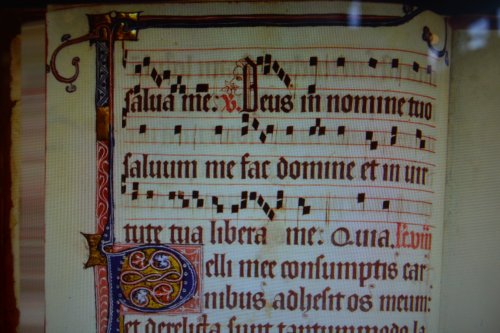 salua me: v. Deus in nomine tuo
saluum me fac domine et in uir
tute tua libera me: Quia. lc.viii
Pelli mee consumptis car
nibus adhesit os meum:
et derelicta sunt tantummodo